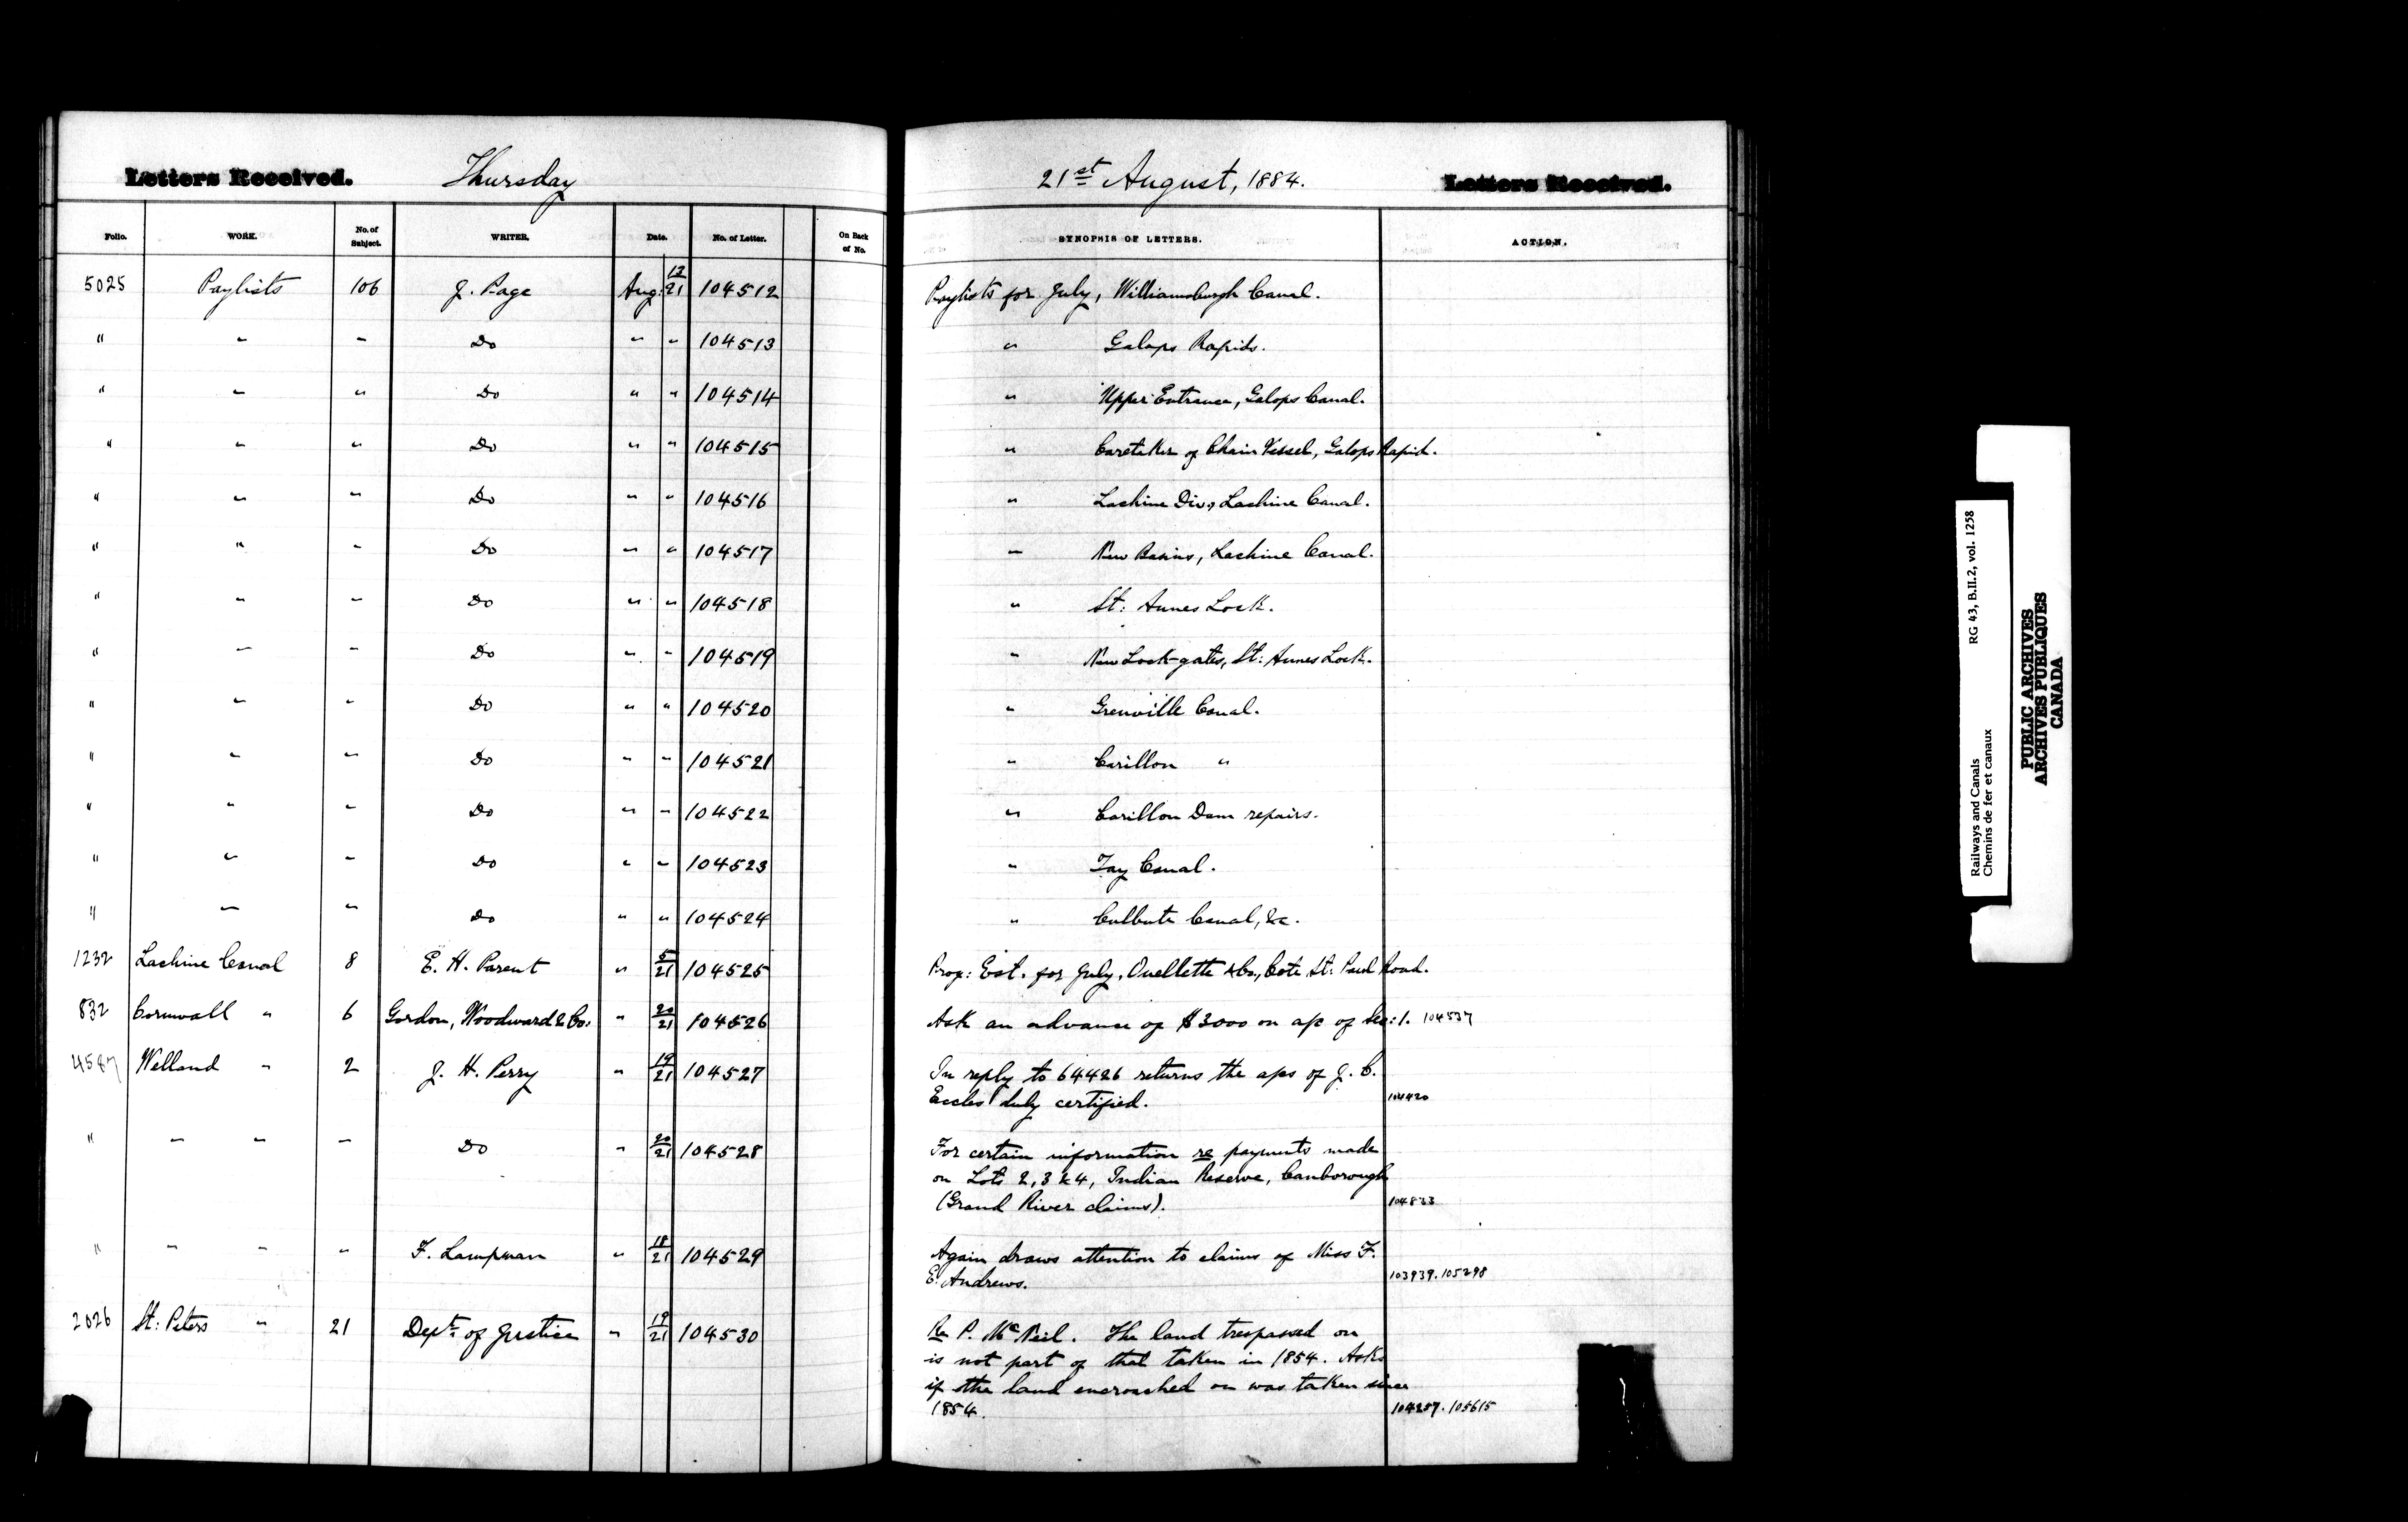 Letters Received. Thursday 21st August, 1884. Letters Received.
Folio. WORK. No. of Subject. WRITER. Date. No. of Letter. On Back of No. SYNOPSIS OF LETTERS. ACTION.
5025 Paylists 106 J. Page Aug. 21 104512 Paylists for July, Williamsburgh Canal.
" " " Do " " 104513 " Galops Rapids.
" " " Do " " 104514 " Upper Entrance, Galops Canal.
" " " Do " " 104515 " Caretaker of Chain Vessel, Galops Rapid.
" " " Do " " 104516 " Lachine Div., Lachine Canal.
" " " Do " " 104517 " New Basins, Lachine Canal.
" " " Do " " 104518 " St: Annes Lock.
" " " Do " " 104519 " New Lock-gates, St: Annes Lock.
" " " Do " " 104520 " Grenville Canal.
" " " Do " " 104521 " Carillon "
" " " Do " " 104522 " Carillon Dam repairs.
" " " Do " " 104523 " Tay Canal.
" " " Do " " 104524 " Culbute Canal, &c.
1232 Lachine Canal 8 E. H. Parent " 5/21 104525 Prog: Est. for July, Ouellette & Co., Cote St: Paul Road.
832 Cornwall " 6 Gordon, Woodward & Co. " 20/21 104526 Ask an advance of $3000 on a/c of Sec: 1. 104537
4587 Welland " 2 J. H. Perry " 19/21 104527 In reply to 64426 returns the a/cs of J. C.
Eccles duly certified. 104420
" " " " Do " 20/21 104528 For certain information re payments made
on Lots 2, 3 & 4, Indian Reserve, Canborough
(Grand River claims). 104833
" " " " F. Lampman " 18/21 104529 Again draws attention to claims of Miss F.
E. Andrews. 103939. 105298
2026 St: Peters " 21 Dept. of Justice " 19/21 104530 Re P. McNeil. The land trespassed on
is not part of that taken in 1854. Asks
if the land encroached on was taken since
1854. 104257. 105615
Railways and Canals RG 43, B.II.2, vol. 1258
Chemins de fer et canaux
PUBLIC ARCHIVES
ARCHIVES PUBLIQUES
CANADA